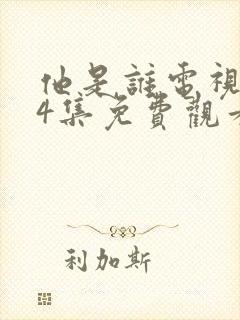 他是誰電視
4集免費觀看
利加斯